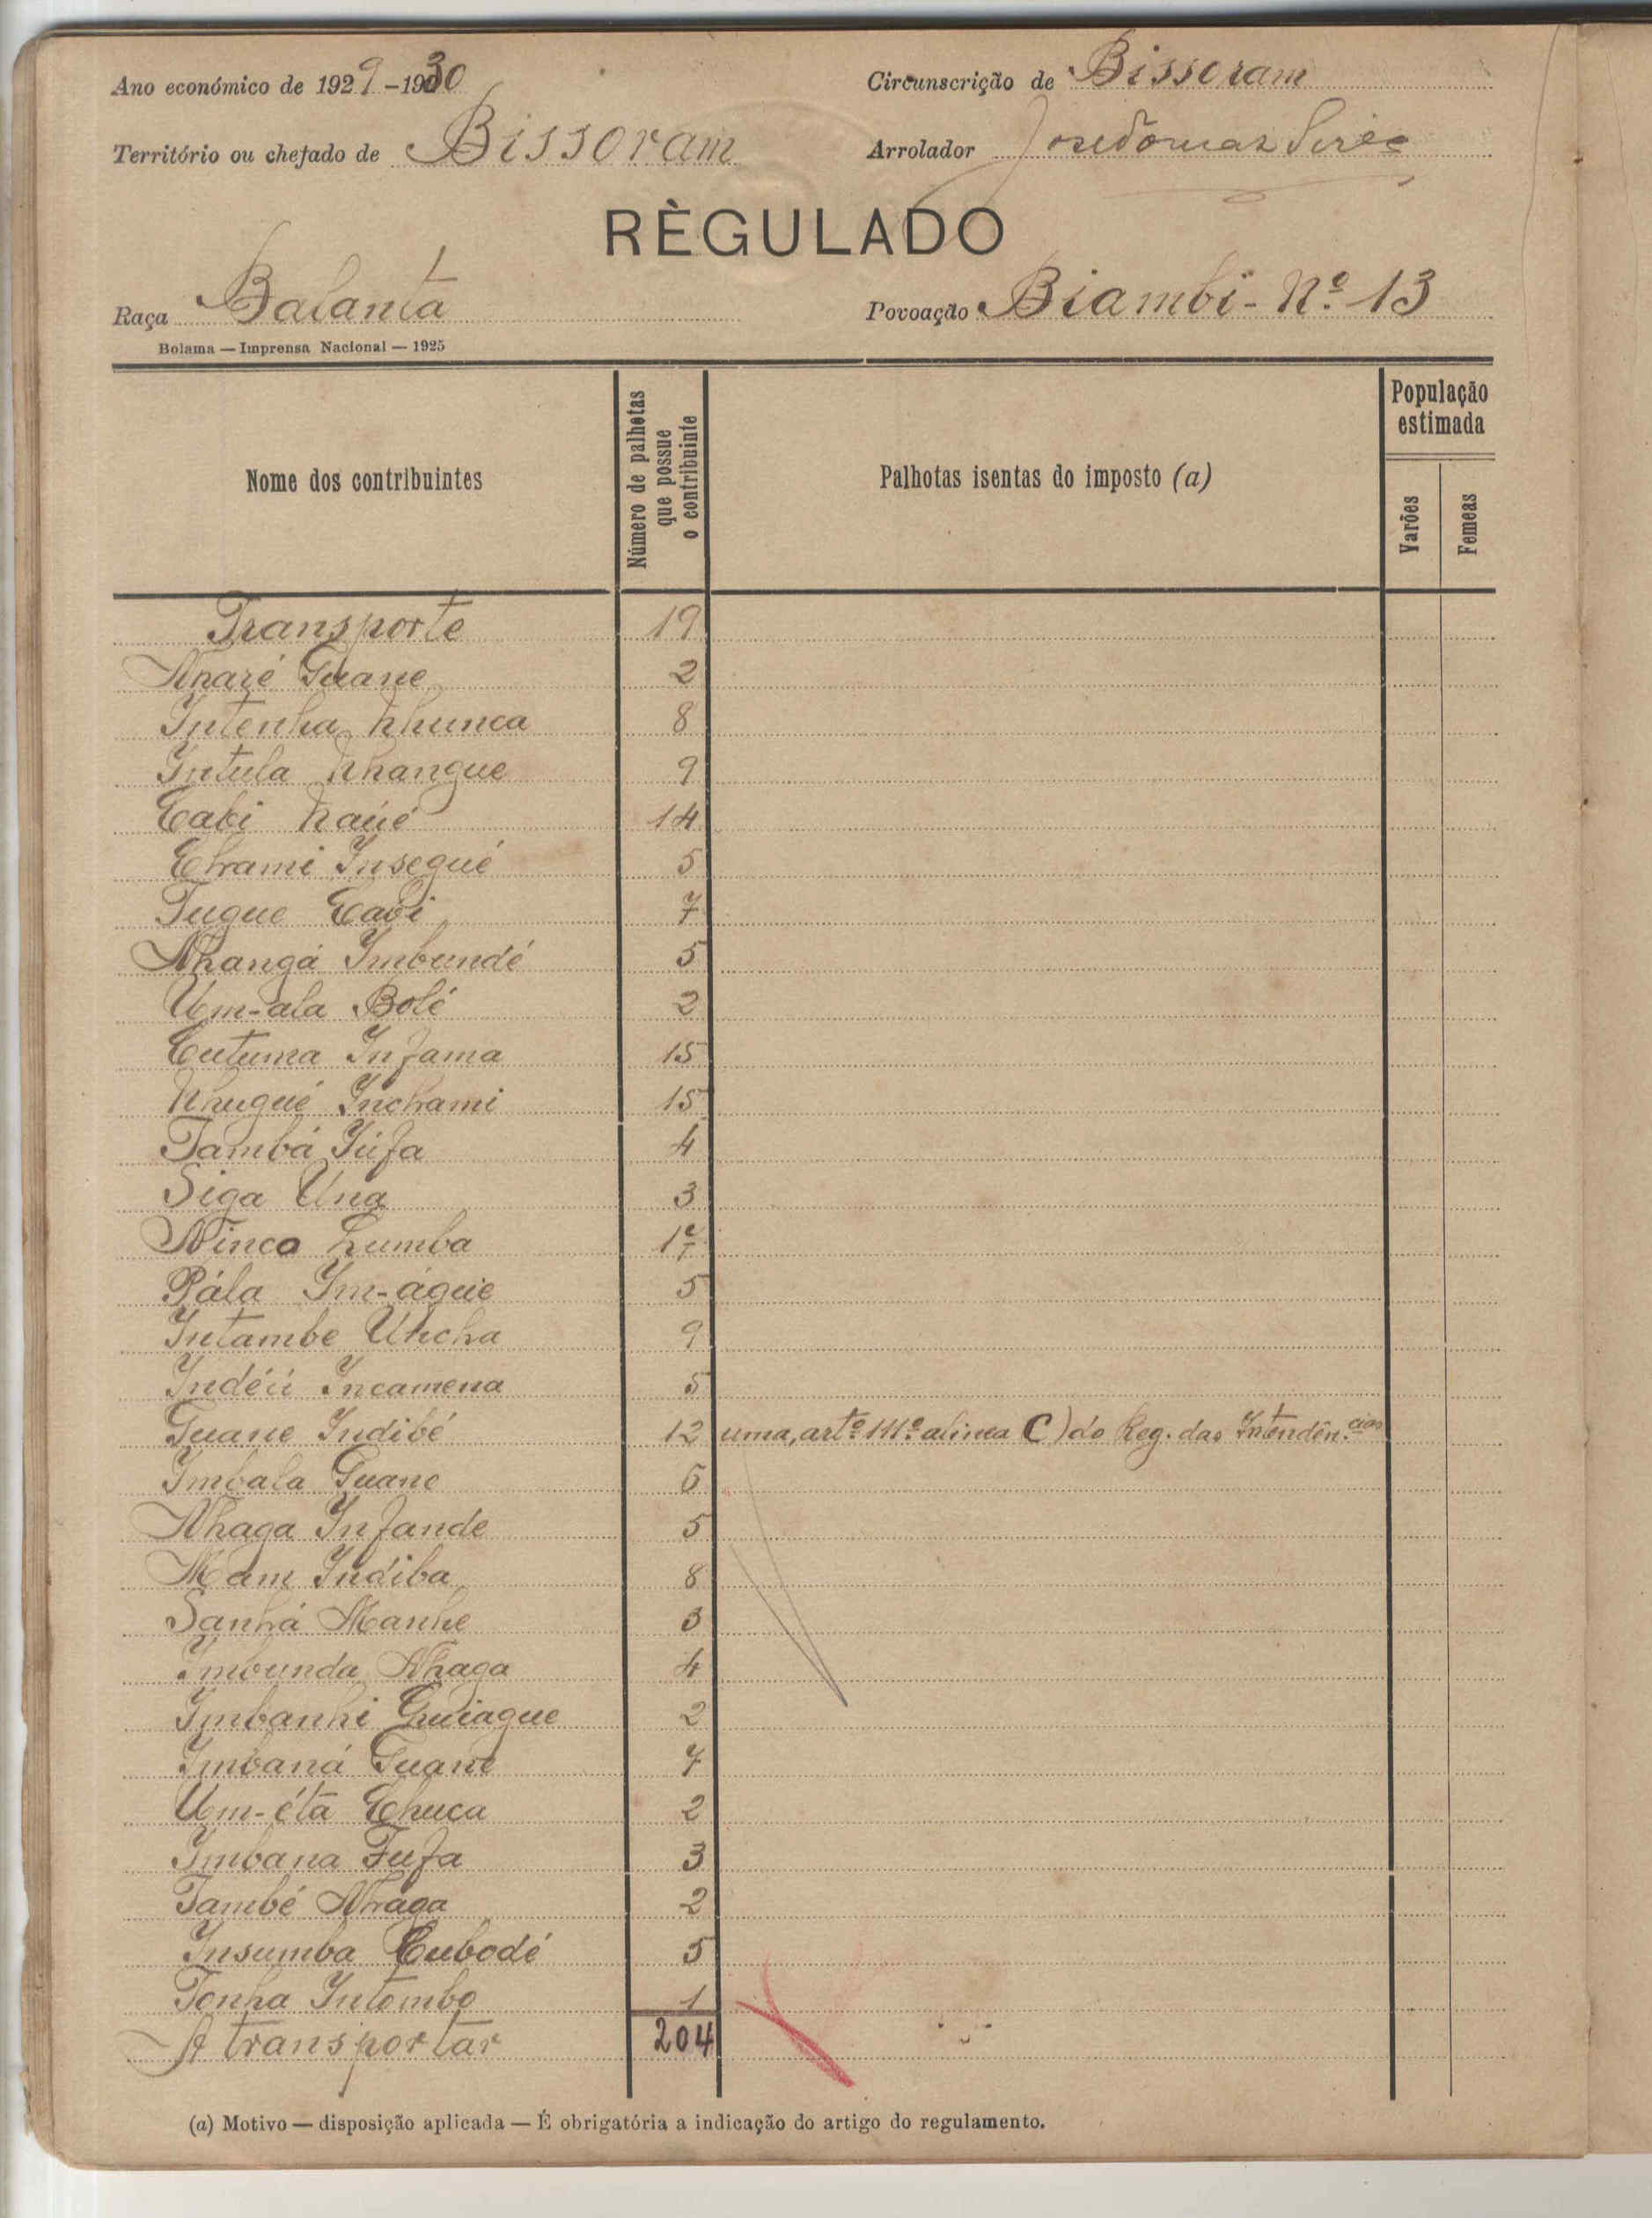 Ano económico de 1929-1930
Circunscrição de Bissoram
Território ou chefado de Bissoram
Arrolador
RÈGULADO
Raça Balanta
Povoação Biambi - Nº 13
Bolama — Imprensa Nacional — 1925
Nome dos contribuintes
Número de palhotas que possue o contribuinte
Palhotas isentas do imposto (a)
População estimada
Varões
Femeas
Transporte 19
Nharé Tuane 2
Intenha Nhunca 8
Intula Nhangue 9
Cabi Naúé 14
Chami Insegué 5
Tugue Cabi 7
Nhangá Imbundé 5
Um-ala Bolé 2
Cutuma Infama 15
Nhugué Inchami 15
Tambá Iúfa 4
Siga Una 3
Ninca Lumba
Pála Im-águe 5
Intambe Uncha 9
Indéü Incamena 5
Tuane Indibé 12 uma, artº 111º alinea C) do Reg. das Intendên.cias
Imbala Tuane 6
Nhaga Infande 5
Mam Indiba 8
Sanhá Manhe 3
Imbunda Nhaga 4
Imbanhi Guiague 2
Imbaná Tuane 7
Um-éta Chuca 2
Imbana Fufa 3
També Nhaga 2
Insumba Cubodé 5
Tonha Intombo 1
A transportar 204
(a) Motivo — disposição aplicada — É obrigatória a indicação do artigo do regulamento.